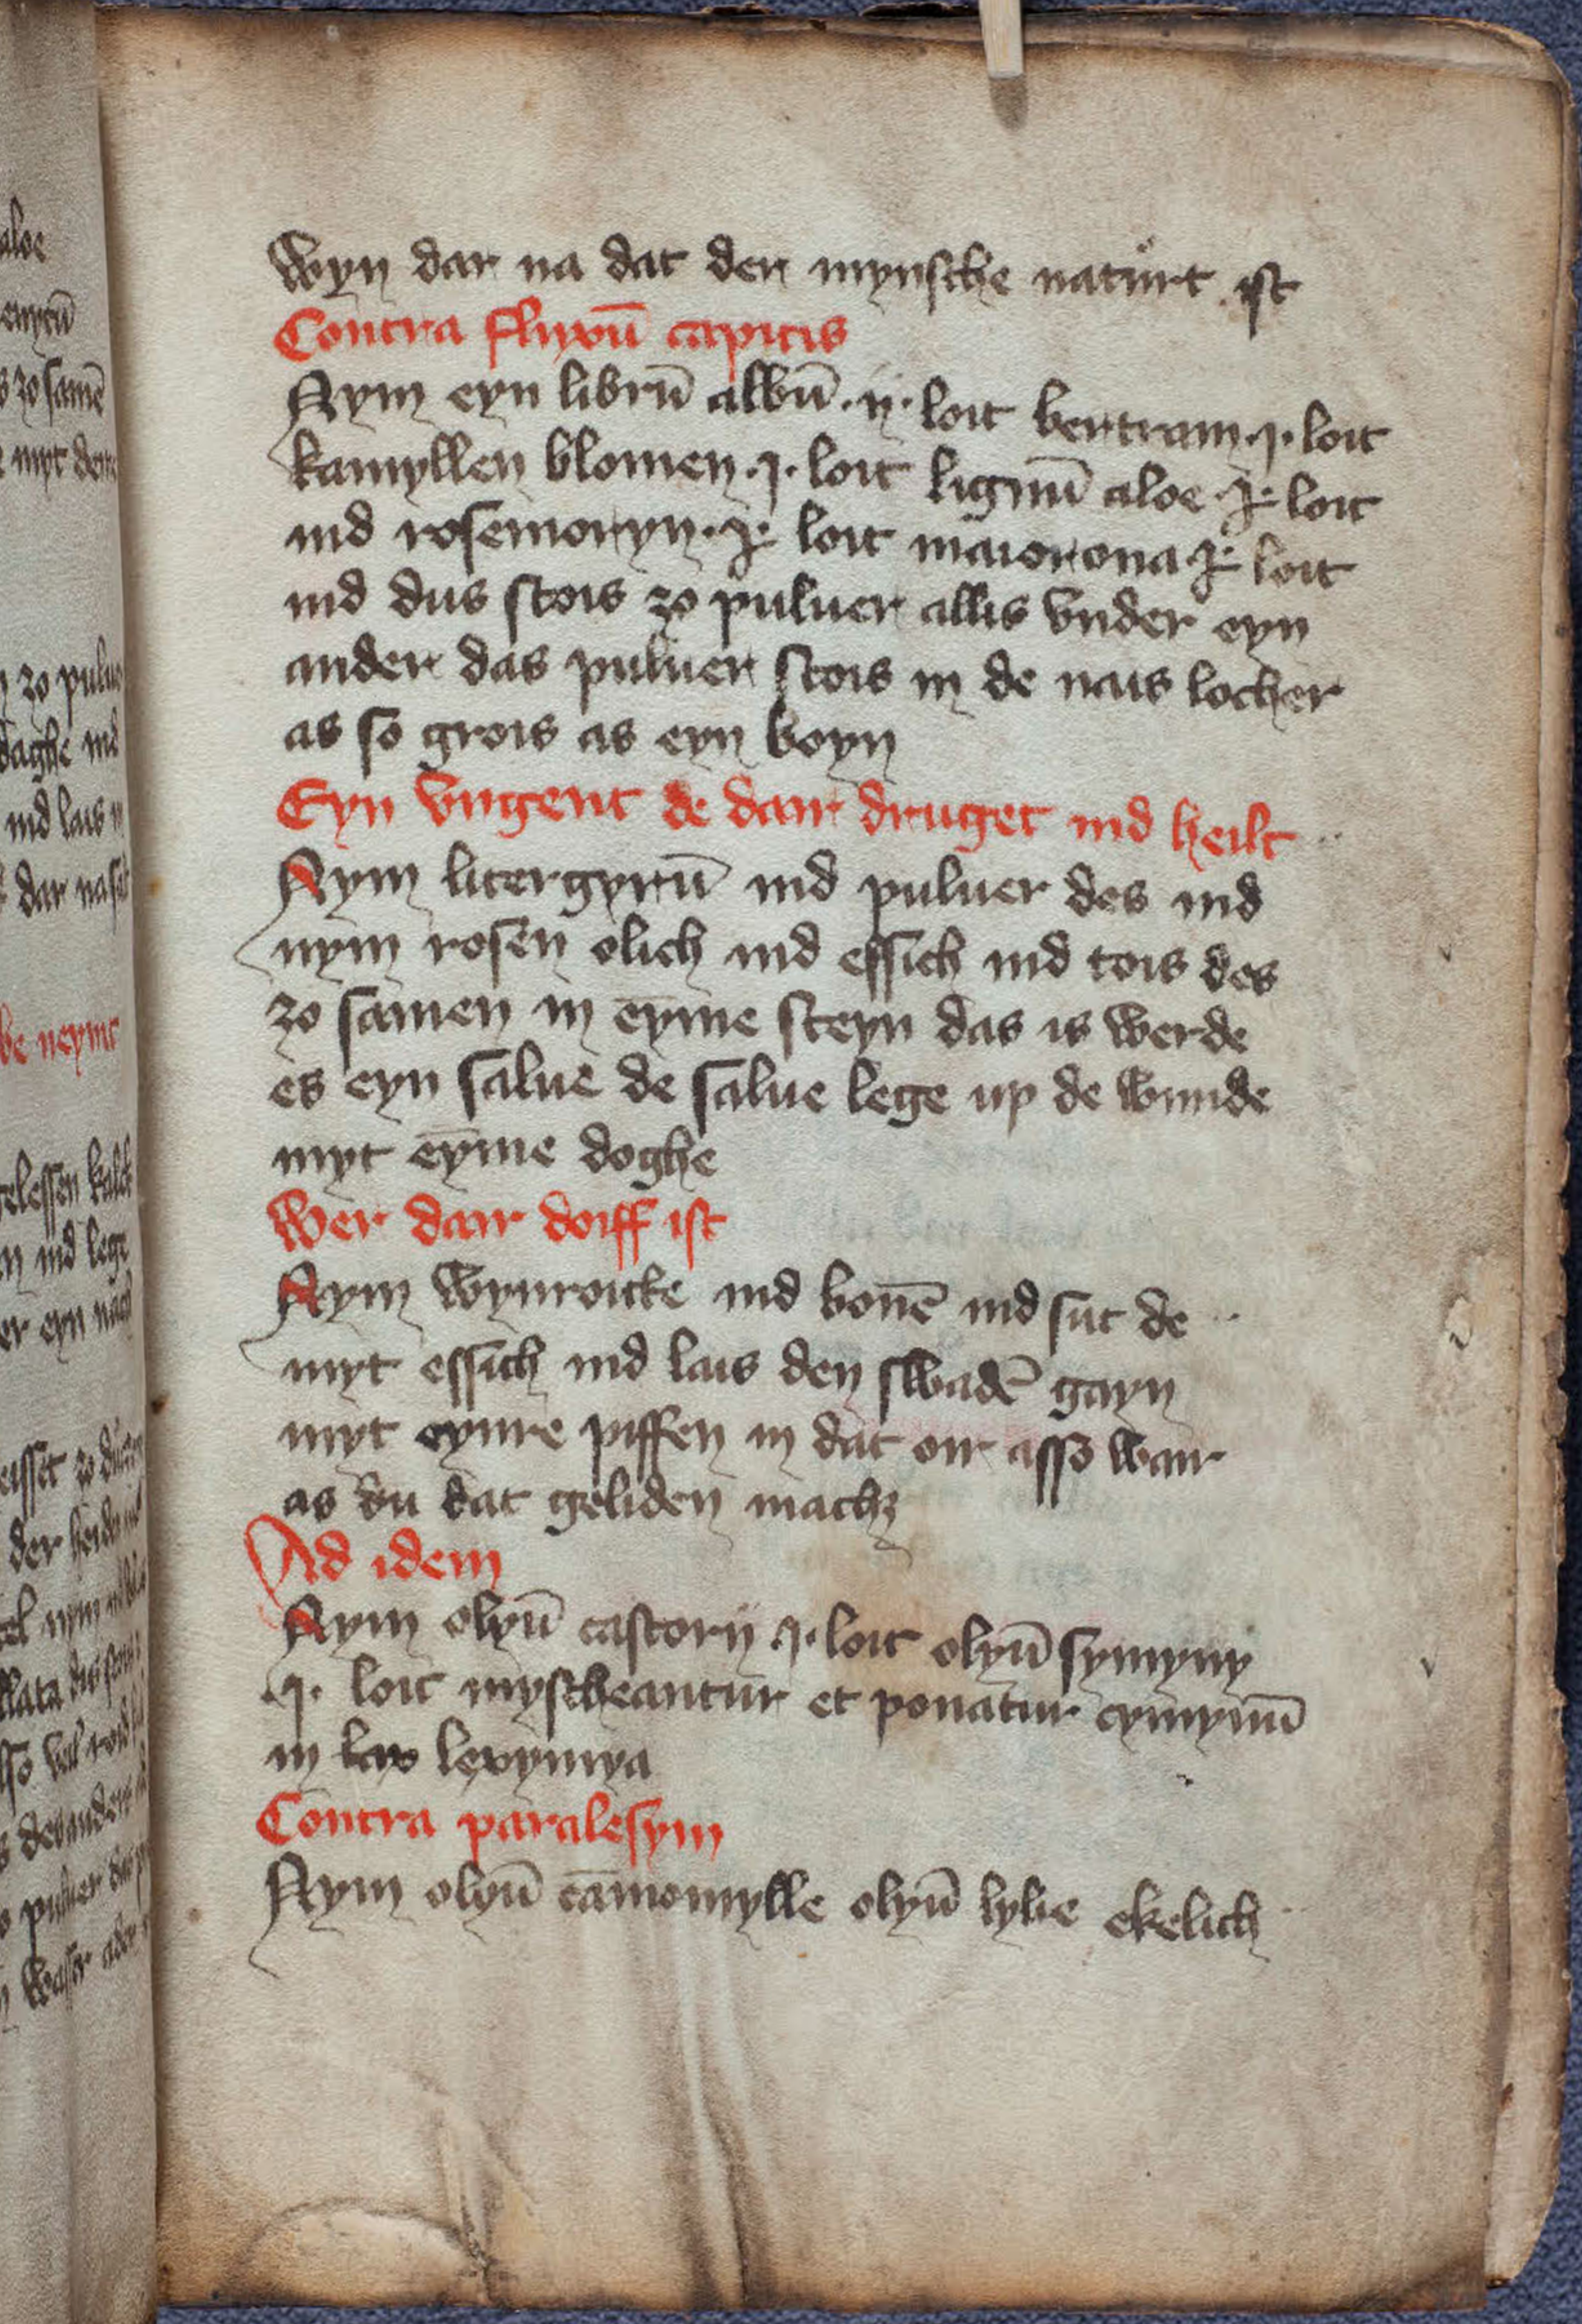 wyn dar na dat der mynsche naturt ist
Contra fluxū capitis
Nym eyn librū albū .ij. loit bertram .j. loit
kamyllen blomen .j. loit lignū aloe .j. loit
ind rosemoryn .j. loit maiorona .j. loit
ind dus stois zo puluer allis vnder eyn
ander das puluer stois in de nais locher
as so grois as eyn boyn
Eyn vngent de dair druget ind heilt
Nym litergyrū ind puluer des ind
nym rosen olich ind essich ind tois des
zo samen in eyme steyn das is werde
es eyn salue de salue lege up de wunde
myt eyme doghe
Wer dair doiff ist
Nym wynroicke ind bonē ind sut de
myt essich ind lais den swadē gayn
myt eynre piffen in dat oir asso warr
as du dat geliden machz
Ad idem
Nym olyū castorij .j. loit olyū symyny
.j. loit myscheantur et ponatur cymynū
in lexymya
Contra paralesym
Nym olyū camomylle olyū lylie ekelich
aloe
zo samē
myt deme
zo puluer
daghe ind
ind lais
dar na
be neymt
gelessen kalck
ind lege
er eyn